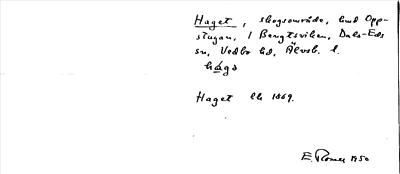 Haget, skogsområde, hmd Opp-
stugan, 1 Bengtsviken, Dals-Eds
sn, Vedbo hd, Älvsb. l.
hági
Haget Ek 1869.
E. Romer 1950